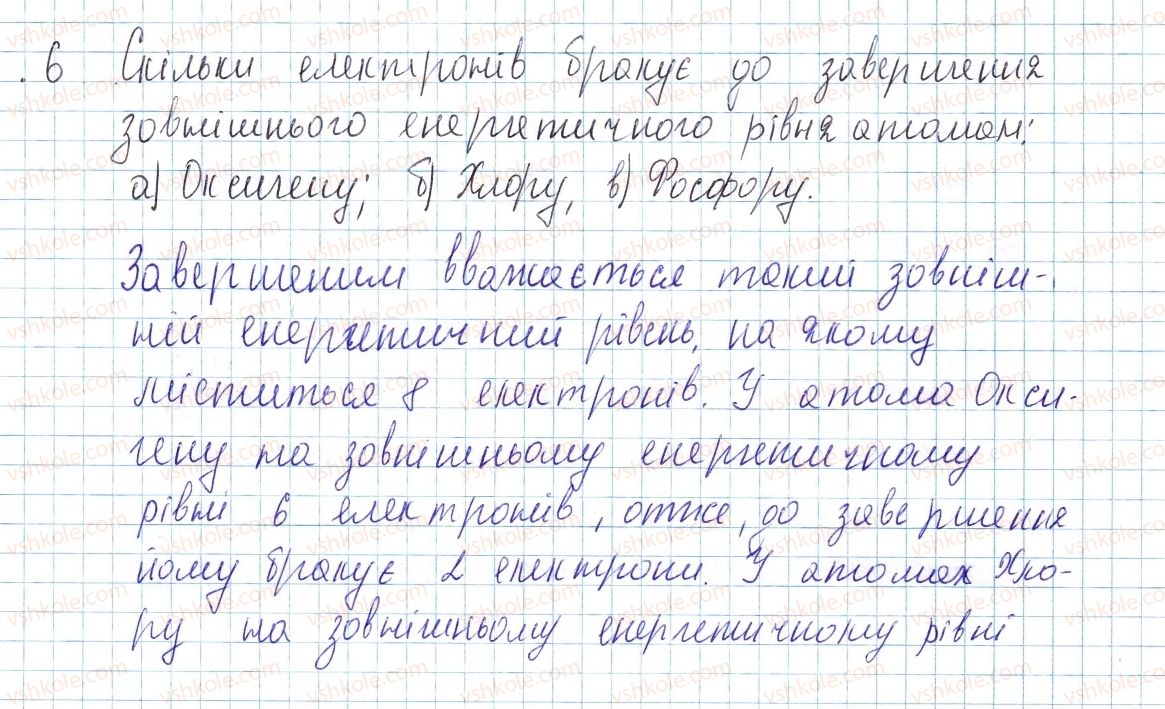 6 Скільки електронів бракує до завершення
зовнішнього енергетичного рівня атомам:
а) Оксигену; б) Хлору, в) Фосфору.
Завершеним вважається такий зовніш-
ній енергетичний рівень, на якому
міститься 8 електронів. У атома Окси-
гену на зовнішньому енергетичному
рівні 6 електронів, отже, до завершення
йому бракує 2 електрони. У атомах Хло-
ру на зовнішньому енергетичному рівні